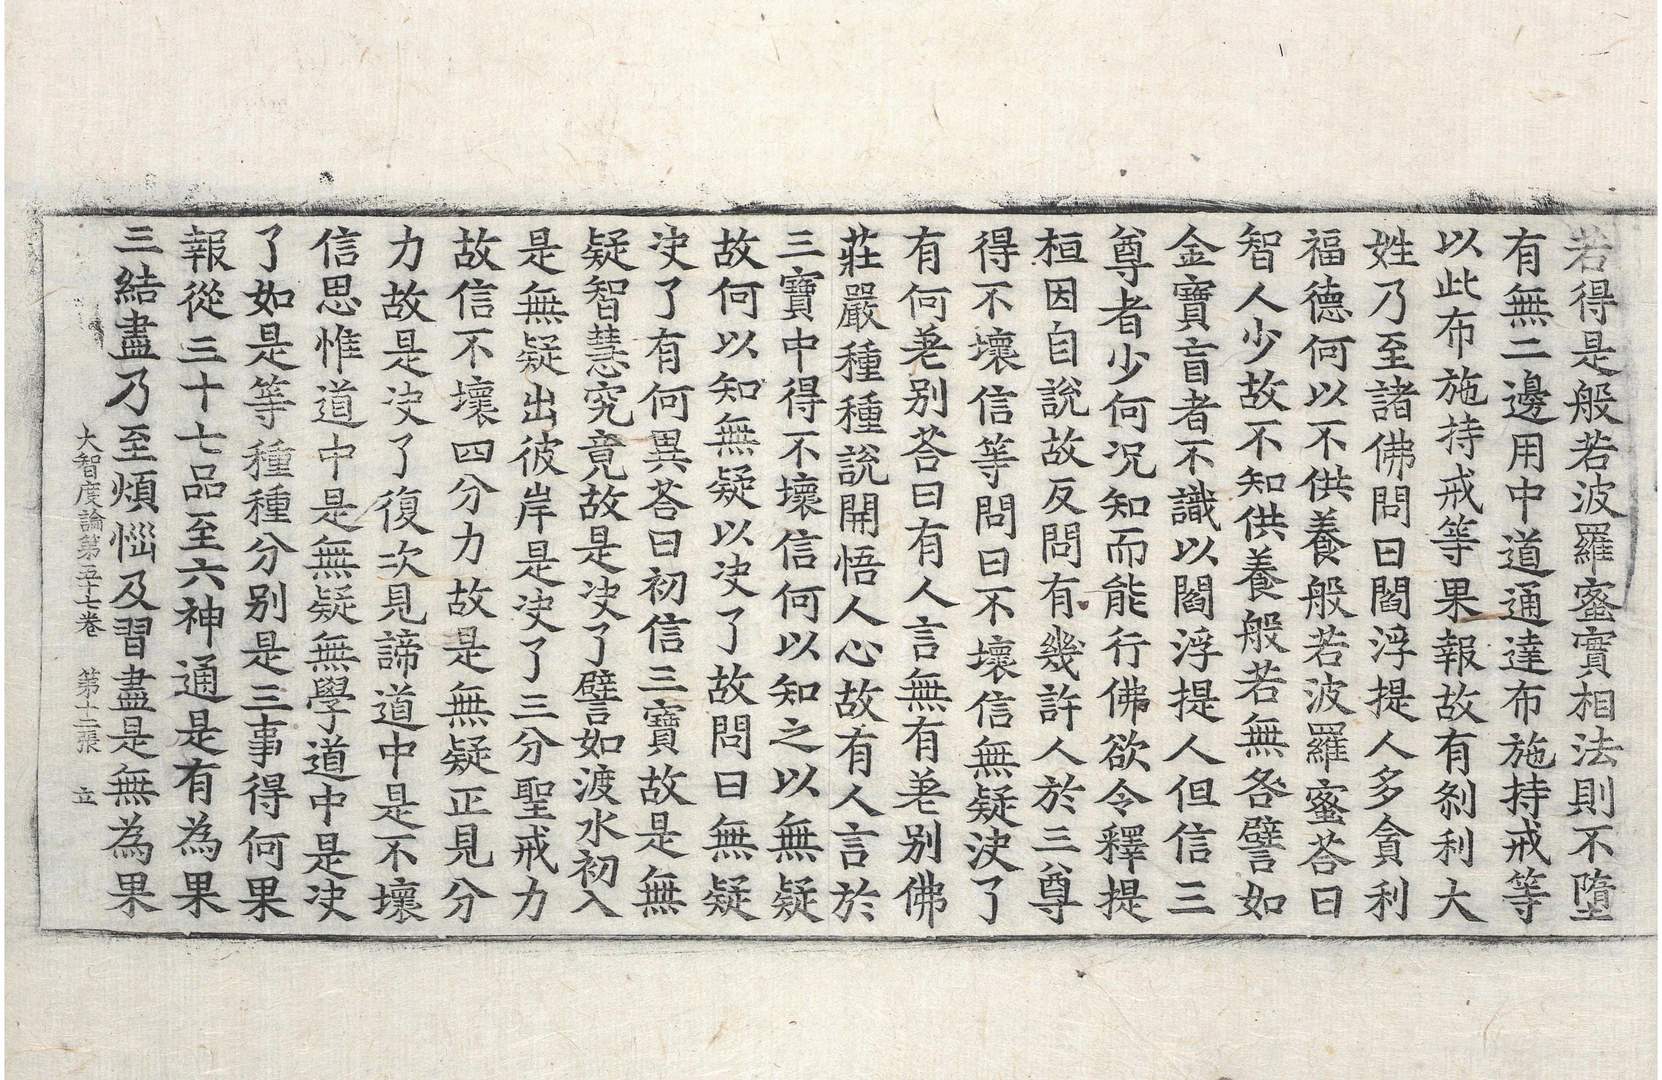 若得是般若波羅蜜實相法則不墮
有無二邊用中道通達布施持戒等
以此布施持戒等果報故有剎利大
姓乃至諸佛問曰閻浮提人多貪利
福德何以不供養般若波羅蜜荅曰
智人少故不知供養般若無咎譬如
金寶盲者不識以閻浮提人但信三
尊者少何況知而能行佛欲令釋提
桓因自說故反問有幾許人於三尊
得不壞信等問曰不壞信無疑決了
有何差别荅曰有人言無有差别佛
莊嚴種種說開悟人心故有人言於
三寶中得不壞信何以知之以無疑
故何以知無疑以決了故問曰無疑
決了有何異荅曰初信三寶故是無
疑智慧究竟故是決了譬如渡水初入
是無疑出彼岸是決了三分聖戒力
故信不壞四分力故是無疑正見分
力故是決了復次見諦道中是不壞
信思惟道中是無疑無學道中是決
了如是等種種分别是三事得何果
報從三十七品至六神通是有為果
三結盡乃至煩惱及習盡是無為果
大智度論第五十七卷　第十二張　立